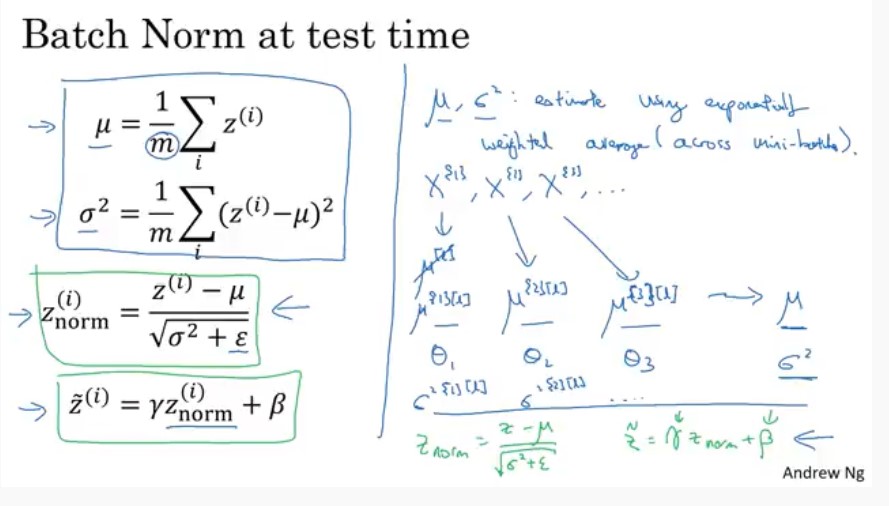 Batch Norm at test time
μ = 1/m ∑_i z^(i)
σ² = 1/m ∑_i (z^(i)−μ)²
z_norm^(i) = (z^(i) − μ)/√(σ² + ε)
z̃^(i) = γz_norm^(i) + β
μ, σ²: estimate using exponentially
weighted average (across mini-batches).
X^{1}, X^{2}, X^{3}, ...
μ^[l]
μ^{1}[l] μ^{2}[l] μ^{3}[l] → μ
θ₁ θ₂ θ₃ σ²
σ²^{1}[l] σ²^{2}[l] ....
z_norm = (z − μ)/√(σ²+ε) z̃ = γ z_norm + β
Andrew Ng